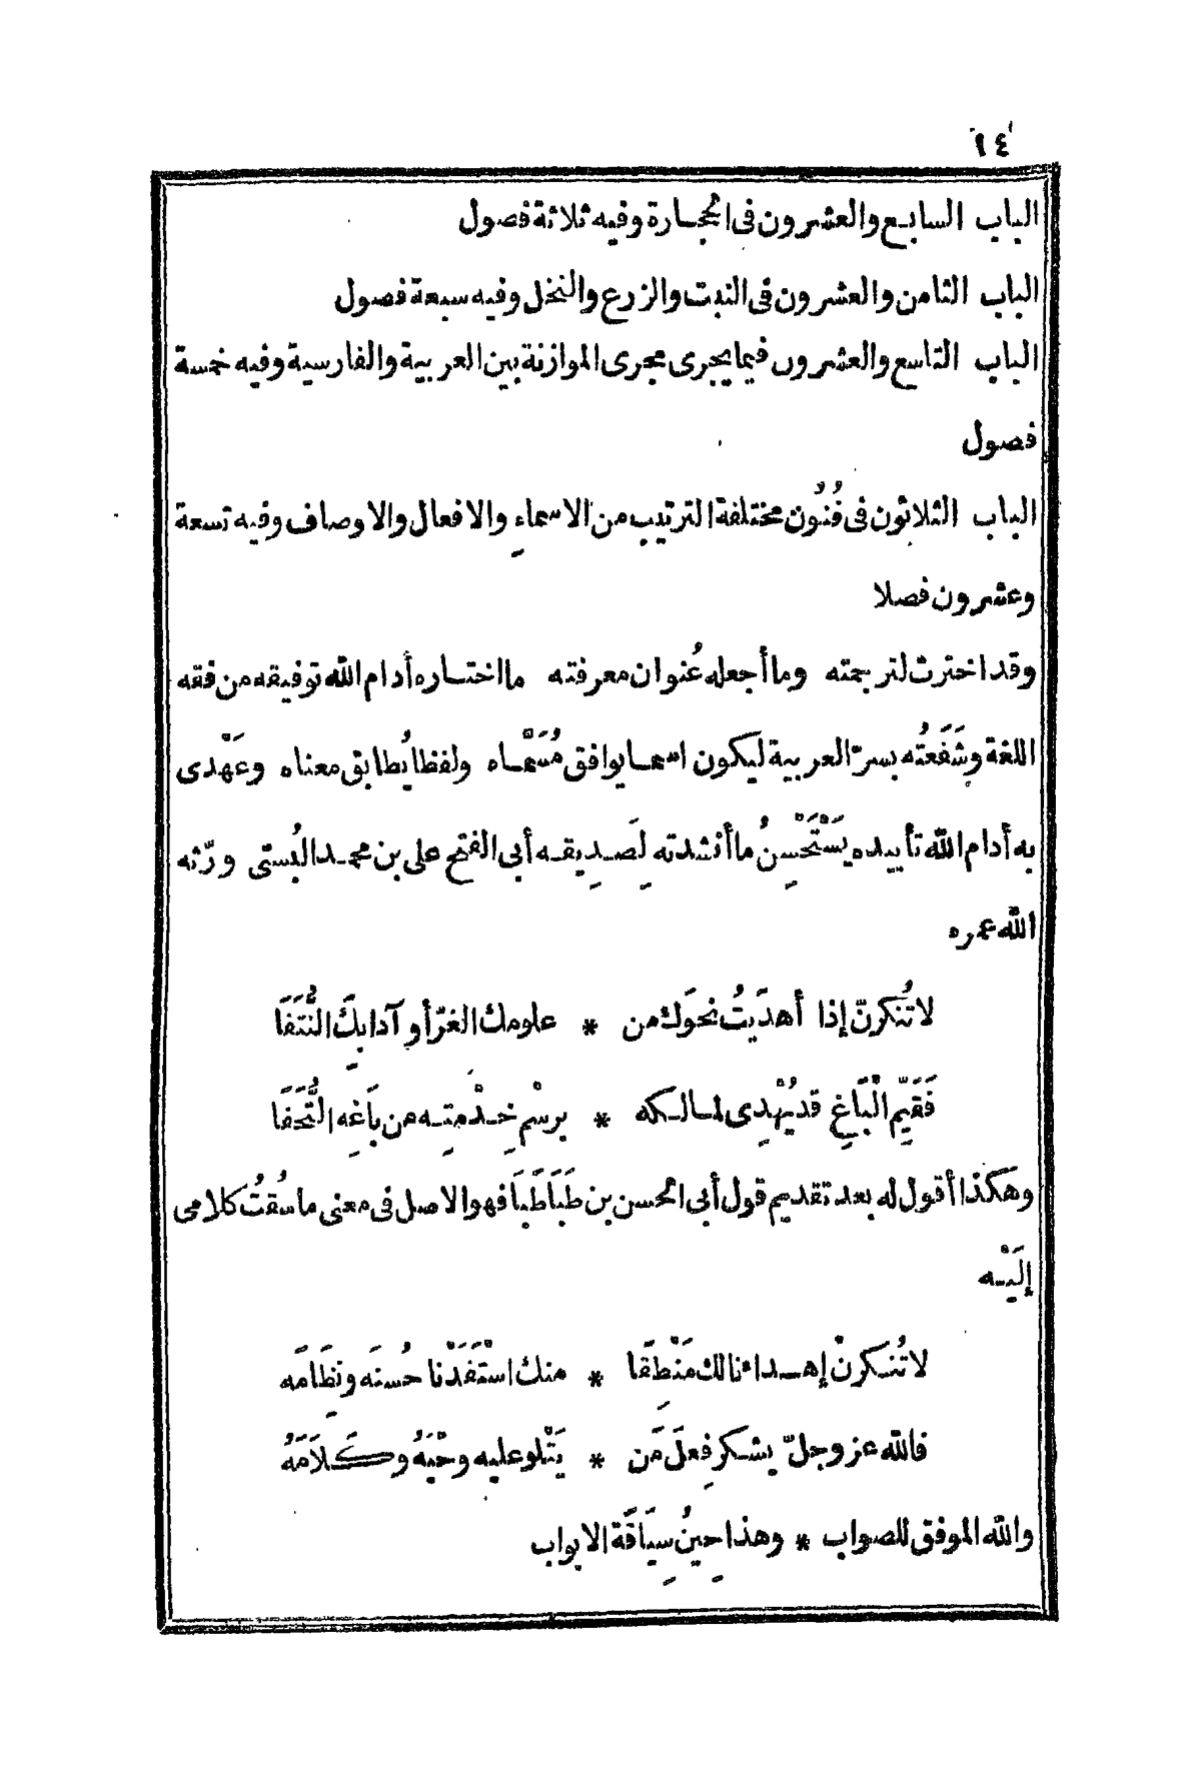 ١٤
الباب السابع والعشرون فى الحجارة وفيه ثلاثة فصول
الباب الثامن والعشرون فى النبت والزرع والنخل وفيه سبعة فصول
الباب التاسع والعشرون فيما يجرى مجرى الموازنة بين العربية والفارسية وفيه خمسة
فصول
الباب الثلاثون فى فُنُون مختلفة الترتيب من الاسماءِ والافعال والاوصاف وفيه تسعة
وعشرون فصلا
وقد اخترت لترجمته وما أجعله عُنوان معرفته ما اختاره أدام الله توفيقه من فقه
اللغة وشَفَعتُه بسرّ العربية ليكون اسما يوافق مُسَمَّاه ولفظا يُطابق معناه وعَهْدى
به أدام الله تأييده يَسْتَحْسِنُ ما أنشدته لِصَدِيقه أبى الفتح على بن محمد البُستى ورّثه
الله عمره
لا تُنكرنّ إذا أهدَيتُ نحوَك من * علومك الغرّ أو آدابِكَ النُّتَفَا
فَقَيِّم الْبَاغِ قد يُهْدِى لمالكه * برسْم خِدْمتِه من بَاغِه التُّحَفَا
وهَكَذا أقول له بعد تقديم قول أبى الحسن بن طَبَاطَبَا فهو الاصل فى معنى ما سُقتُ كلامى
إلَيْه
لا تُنكرنْ إهداءنا لك مَنْطِقَا * منك اسْتَفَدْنا حُسنَه ونِظَامَه
فالله عز وجلّ يشكر فِعلَ مَن * يَتْلو عليه وحْيَهُ وكَلَامَهُ
والله الموفق للصواب * وهذا حِينُ سِيَاقَة الابواب